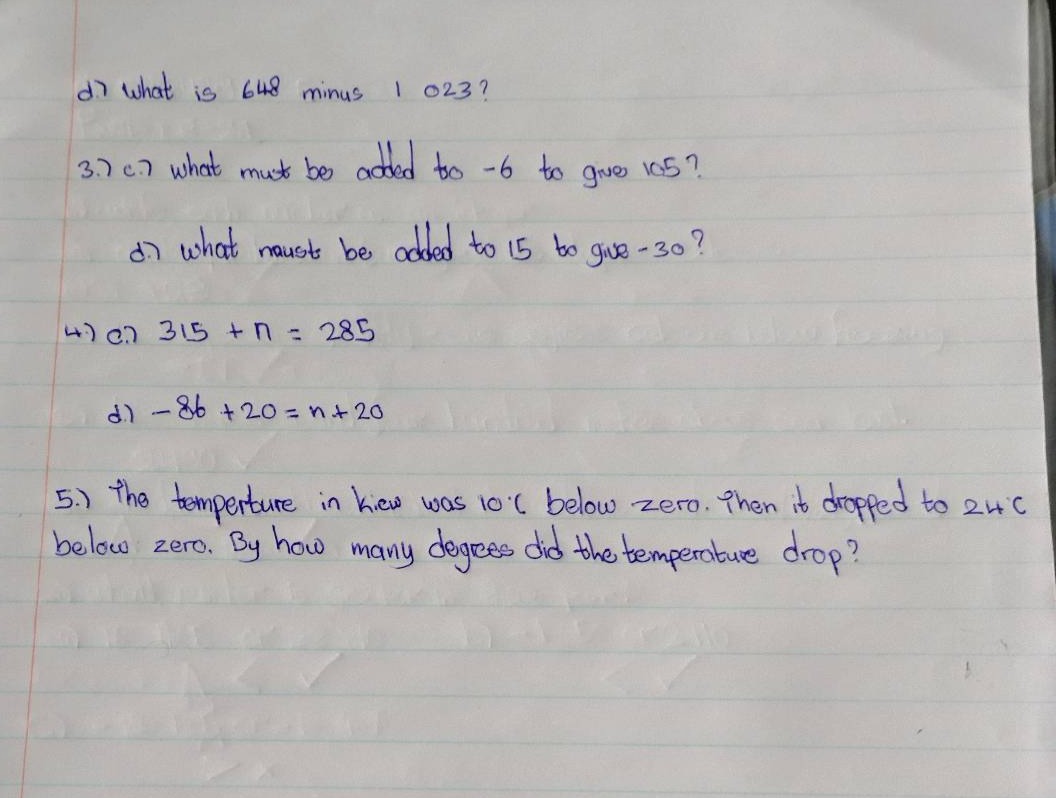 d.) What is 648 minus 1 023?
3.) c.) What must be added to -6 to give 105?
d.) What must be added to 15 to give -30?
4.) c.) 315 + n = 285
d.) -86 + 20 = n + 20
5.) The temperture in Kiew was 10°C below zero. Then it dropped to 24°C
below zero. By how many degrees did the temperature drop?